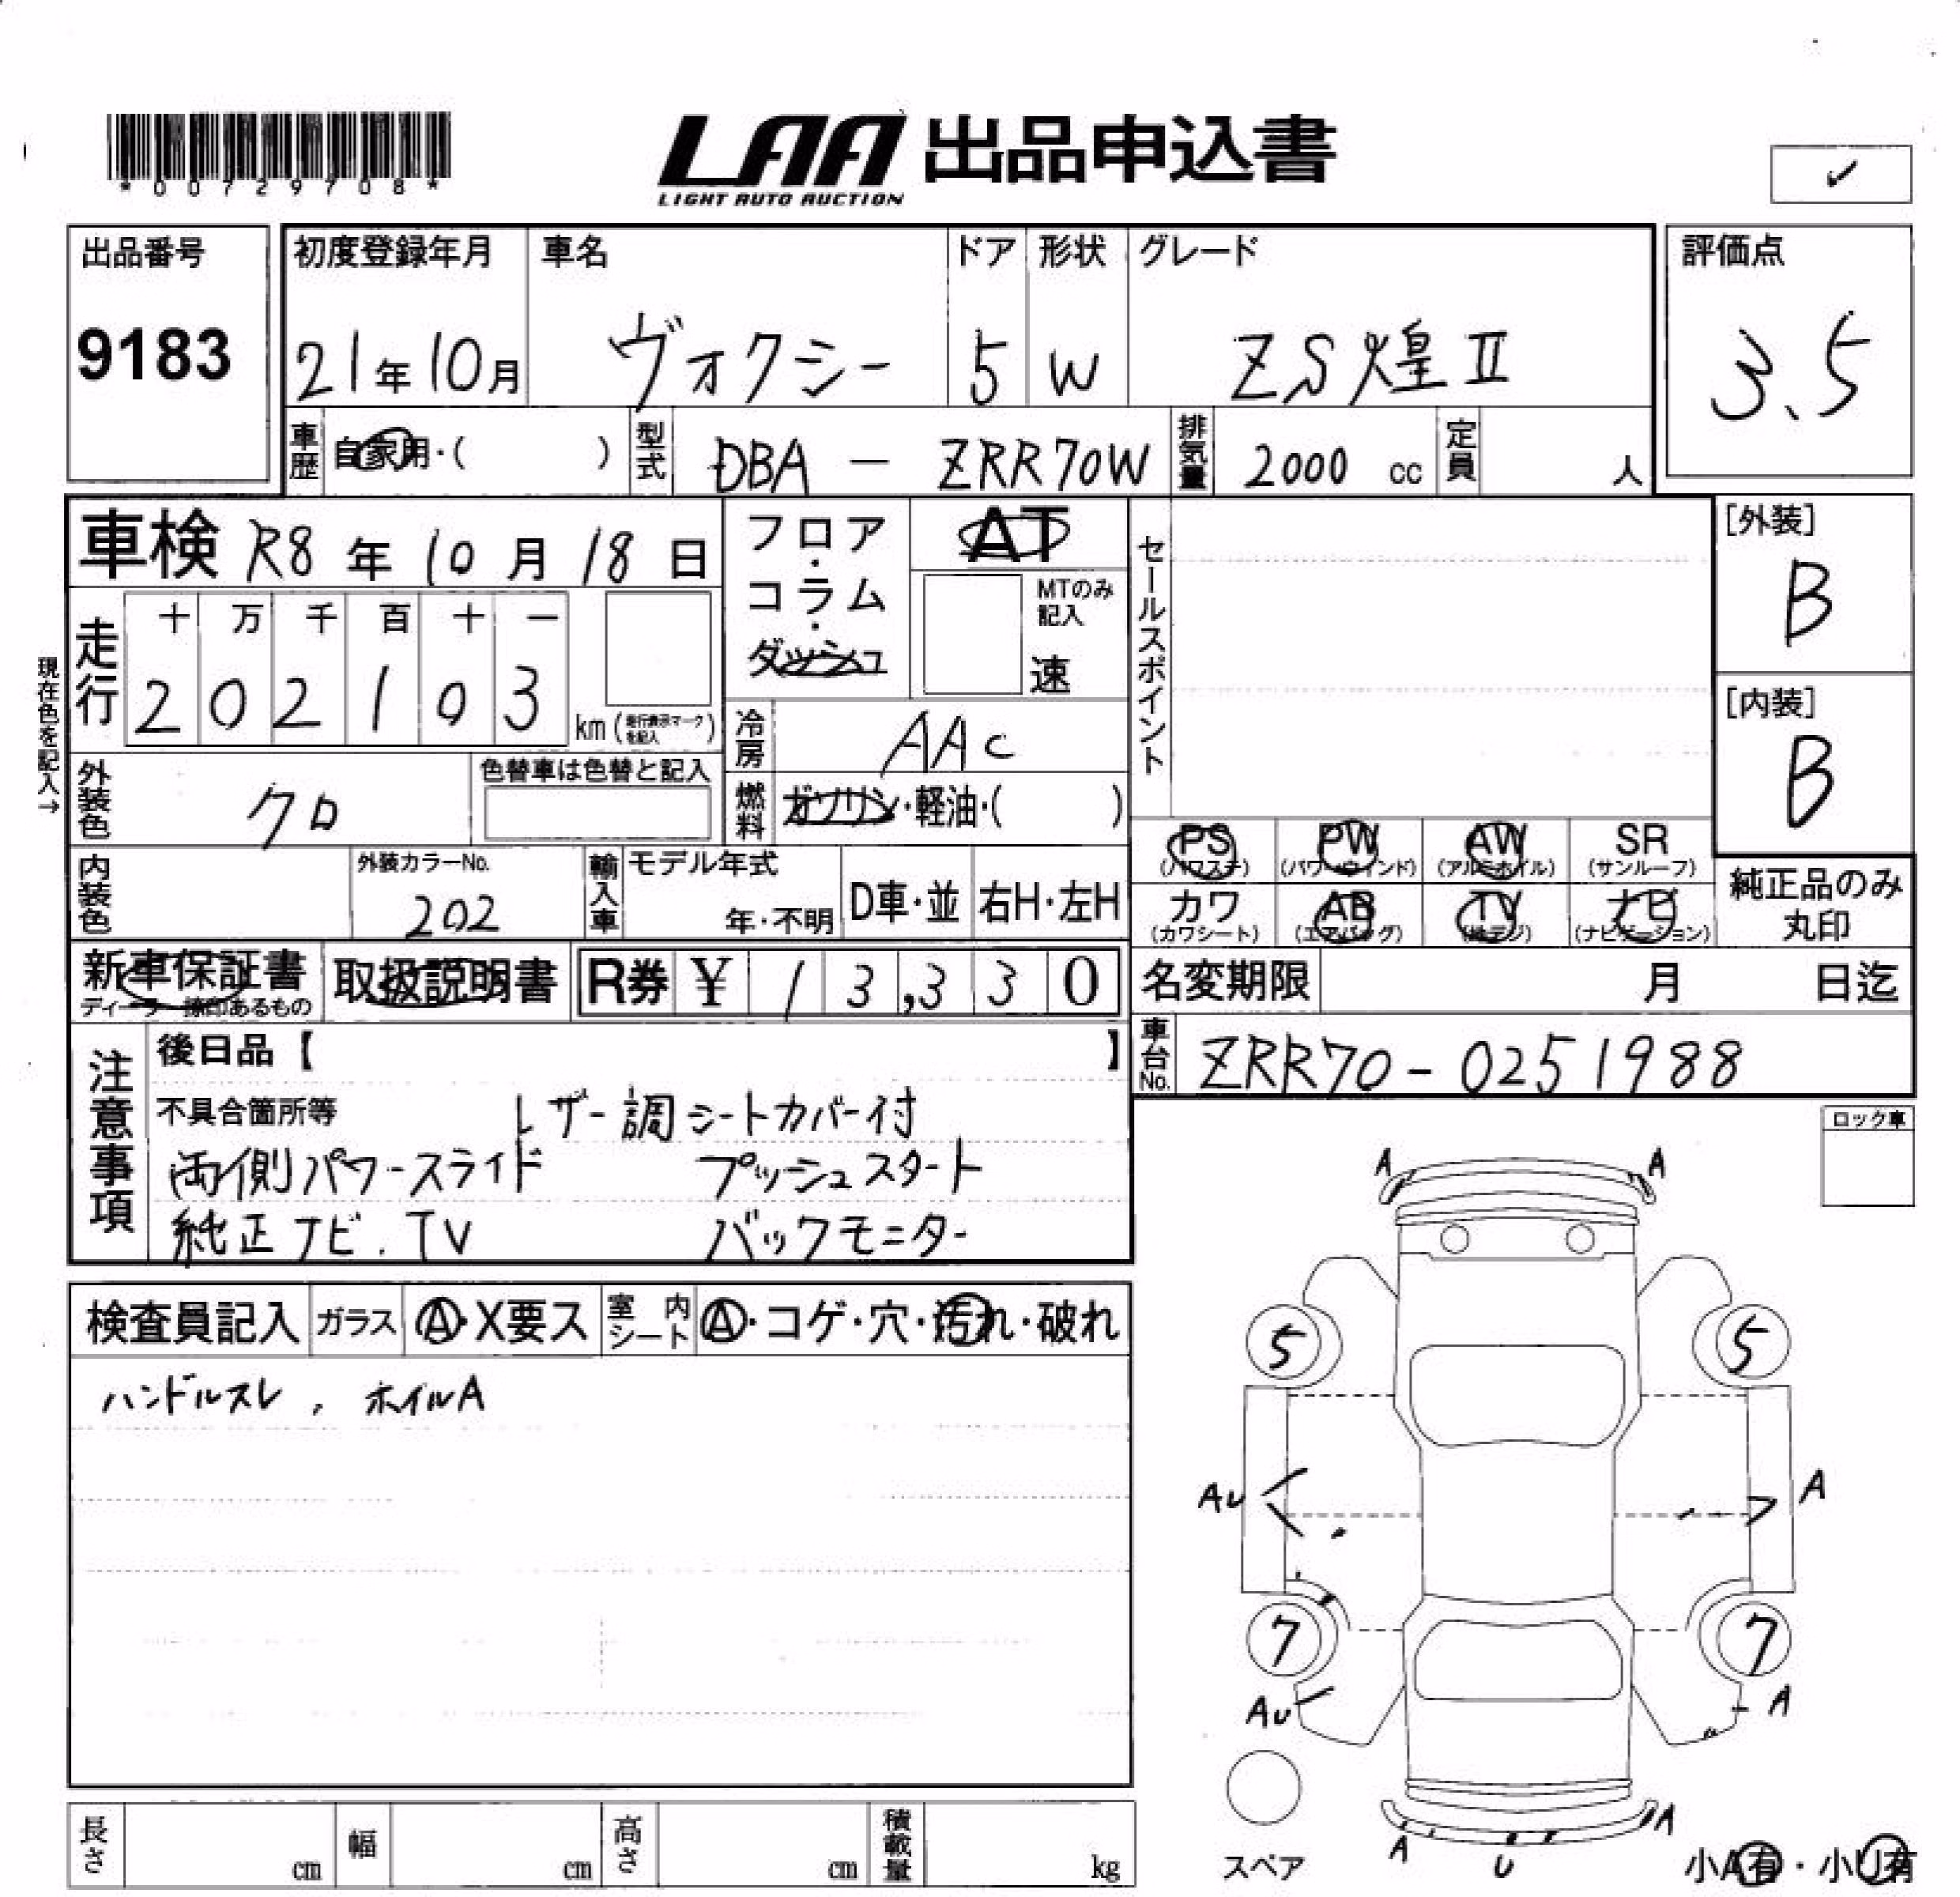 *00729708*
LAA 出品申込書
LIGHT AUTO AUCTION
✓
出品番号
9183
初度登録年月
21年10月
車名
ヴォクシー
ドア
5
形状
W
グレード
ZS煌II
評価点
3.5
車歴 自家用・( )
型式 DBA - ZRR70W
排気量 2000 cc
定員 人
車検 R8年10月18日
フロア・コラム・ダッシュ
AT
MTのみ記入
速
セールスポイント
[外装]
B
[内装]
B
現在色を記入→
走行
十 万 千 百 十 一
2 0 2 1 0 3
km(走行表示マークを記入)
冷房 AAC
外装色 クロ
色替車は色替と記入
燃料 ガソリン・軽油・( )
PS (パワステ)
PW (パワーウインド)
AW (アルミホイル)
SR (サンルーフ)
カワ (カワシート)
AB (エアバッグ)
TV (地デジ)
ナビ (ナビゲーション)
純正品のみ丸印
内装色
外装カラーNo.
202
輸入車
モデル年式
年・不明
D車・並
右H・左H
新車保証書
ディーラー捺印あるもの
取扱説明書
R券 ¥ 13,330
名変期限 月 日迄
車台No. ZRR70-0251988
注意事項
後日品【 】
不具合箇所等 レザー調シートカバー付
両側パワースライド プッシュスタート
純正ナビ.TV バックモニター
ロック車
検査員記入
ガラス A・X要ス
室内シート A・コゲ・穴・汚れ・破れ
ハンドルスレ, ホイルA
A A
5 5
AU A
7 7
AU A
スペア
A U A
小A有・小U有
長さ cm
幅 cm
高さ cm
積載量 kg